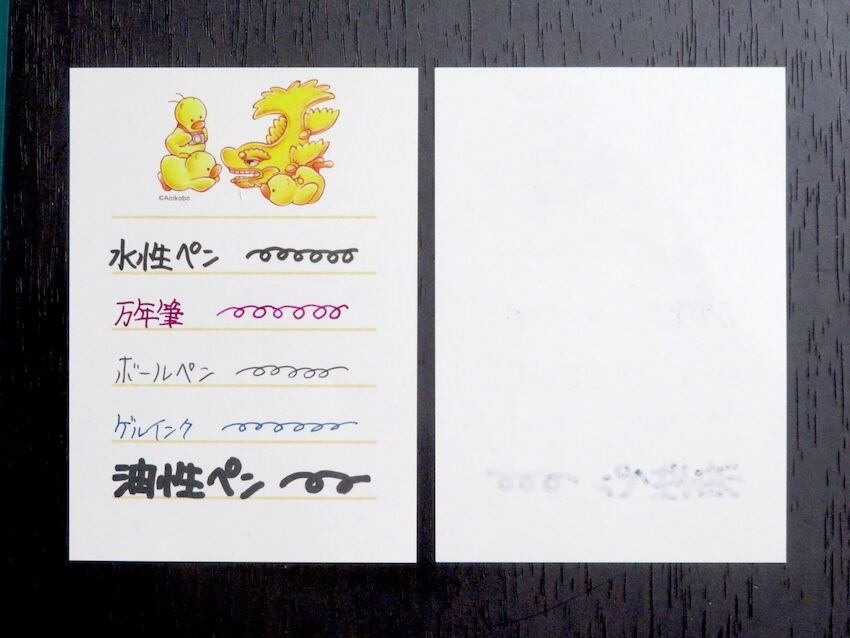 ©Aoikobo
水性ペン
万年筆
ボールペン
ゲルインク
油性ペン